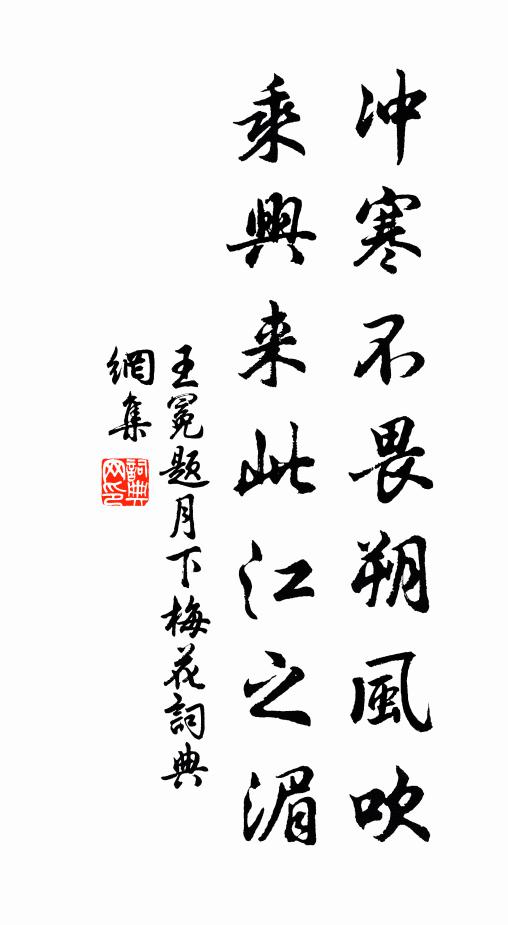 冲寒不畏朔風吹
乘興来此江之湄
王冕题月下梅花詞典
網集
詞典網印